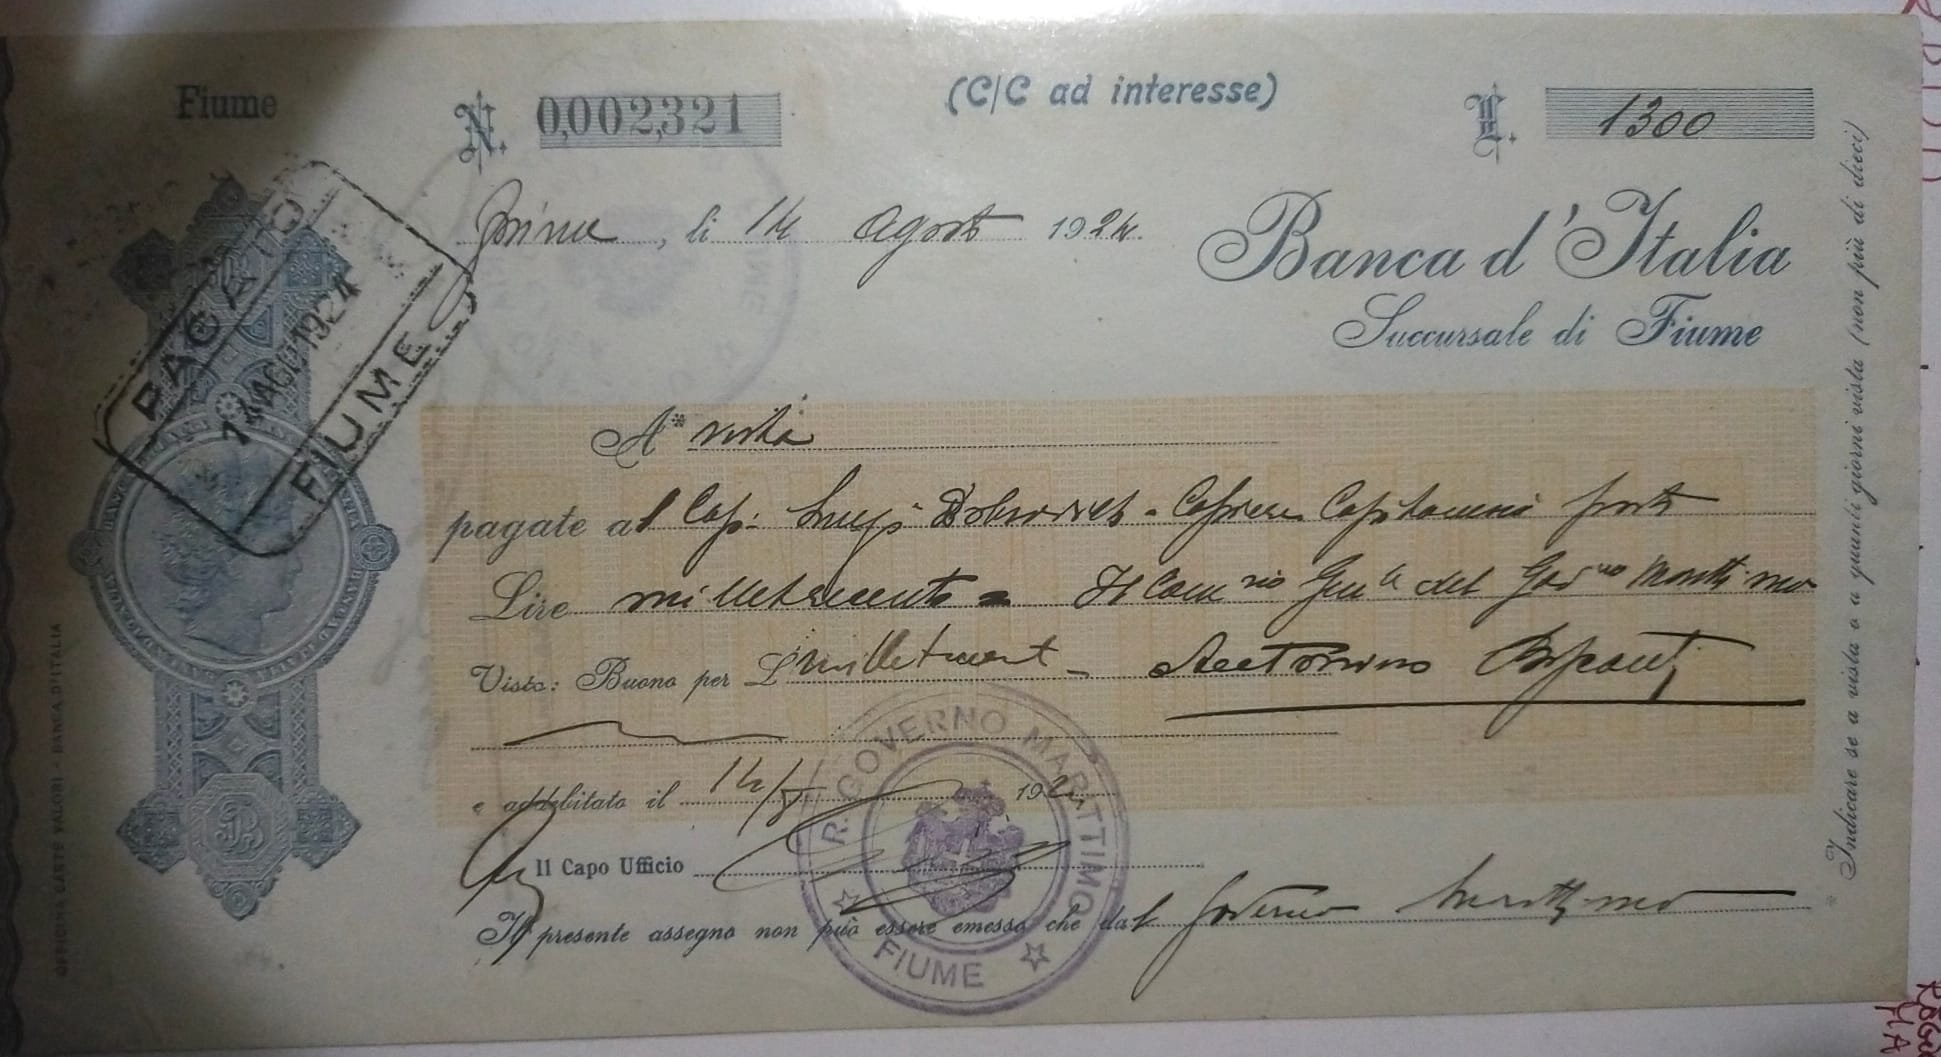 Fiume
N. 0,002,321
(C/C ad interesse)
L. 1300
Fiume, li 14 Agosto 1924
Banca d'Italia
Succursale di Fiume
PAGATO
14 AGO 1924
FIUME
A* vista
pagate al Cap. Luigi Capitaneria porto
Lire milletrecento = Il Com rio Gen le del Gov no Marittimo
Visto: Buono per L. milletrecento -
e addebitato il 14/8 1924
Il Capo Ufficio
Il presente assegno non può essere emesso che dal Governo Marittimo
R. GOVERNO MARITTIMO
FIUME
* Indicare se a vista o a quanti giorni vista (non più di dieci)
OFFICINA CARTE VALORI - BANCA D'ITALIA